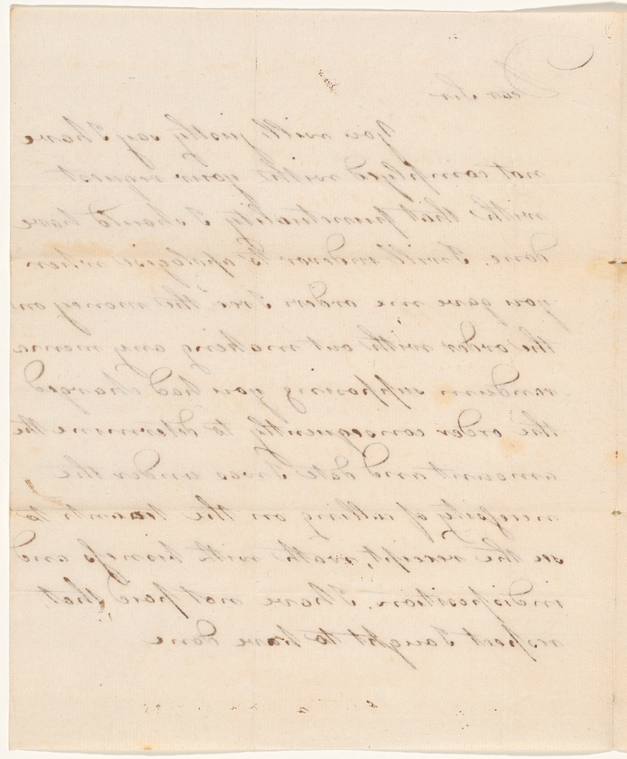 Dear Sir
You will justly say I have
not complyed withe your request
withe that punctuality I should have
done. I will endevor to apologise when
you gave me order I re the money on
the order with out making any memo
randum supposing you had charged
the order consequently to determine the
amount and date I was under the
nessesity of calling on the to
se the receipt, withe bisness and
indisposition, I have not paid that
respect I ought to have done